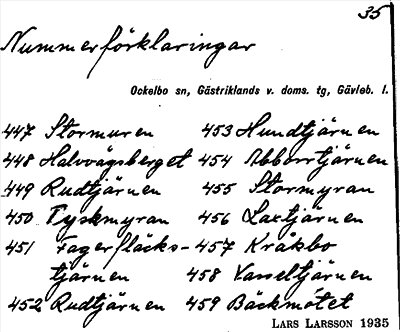 35
Nummerförklaringar
Ockelbo sn, Gästriklands v. doms. tg, Gävleb. l.
447 Stormuren
448 Halvvägsberget
449 Rudtjärnen
450 Tyskmyran
451 Fagerfläcks-
tjärnen
452 Rudtjärnen
453 Hundtjärnen
454 Abborrtjärnen
455 Stormyran
456 Laxtjärnen
457 Kråkbo
458 Vasseltjärnen
459 Bäckmötet
LARS LARSSON 1935